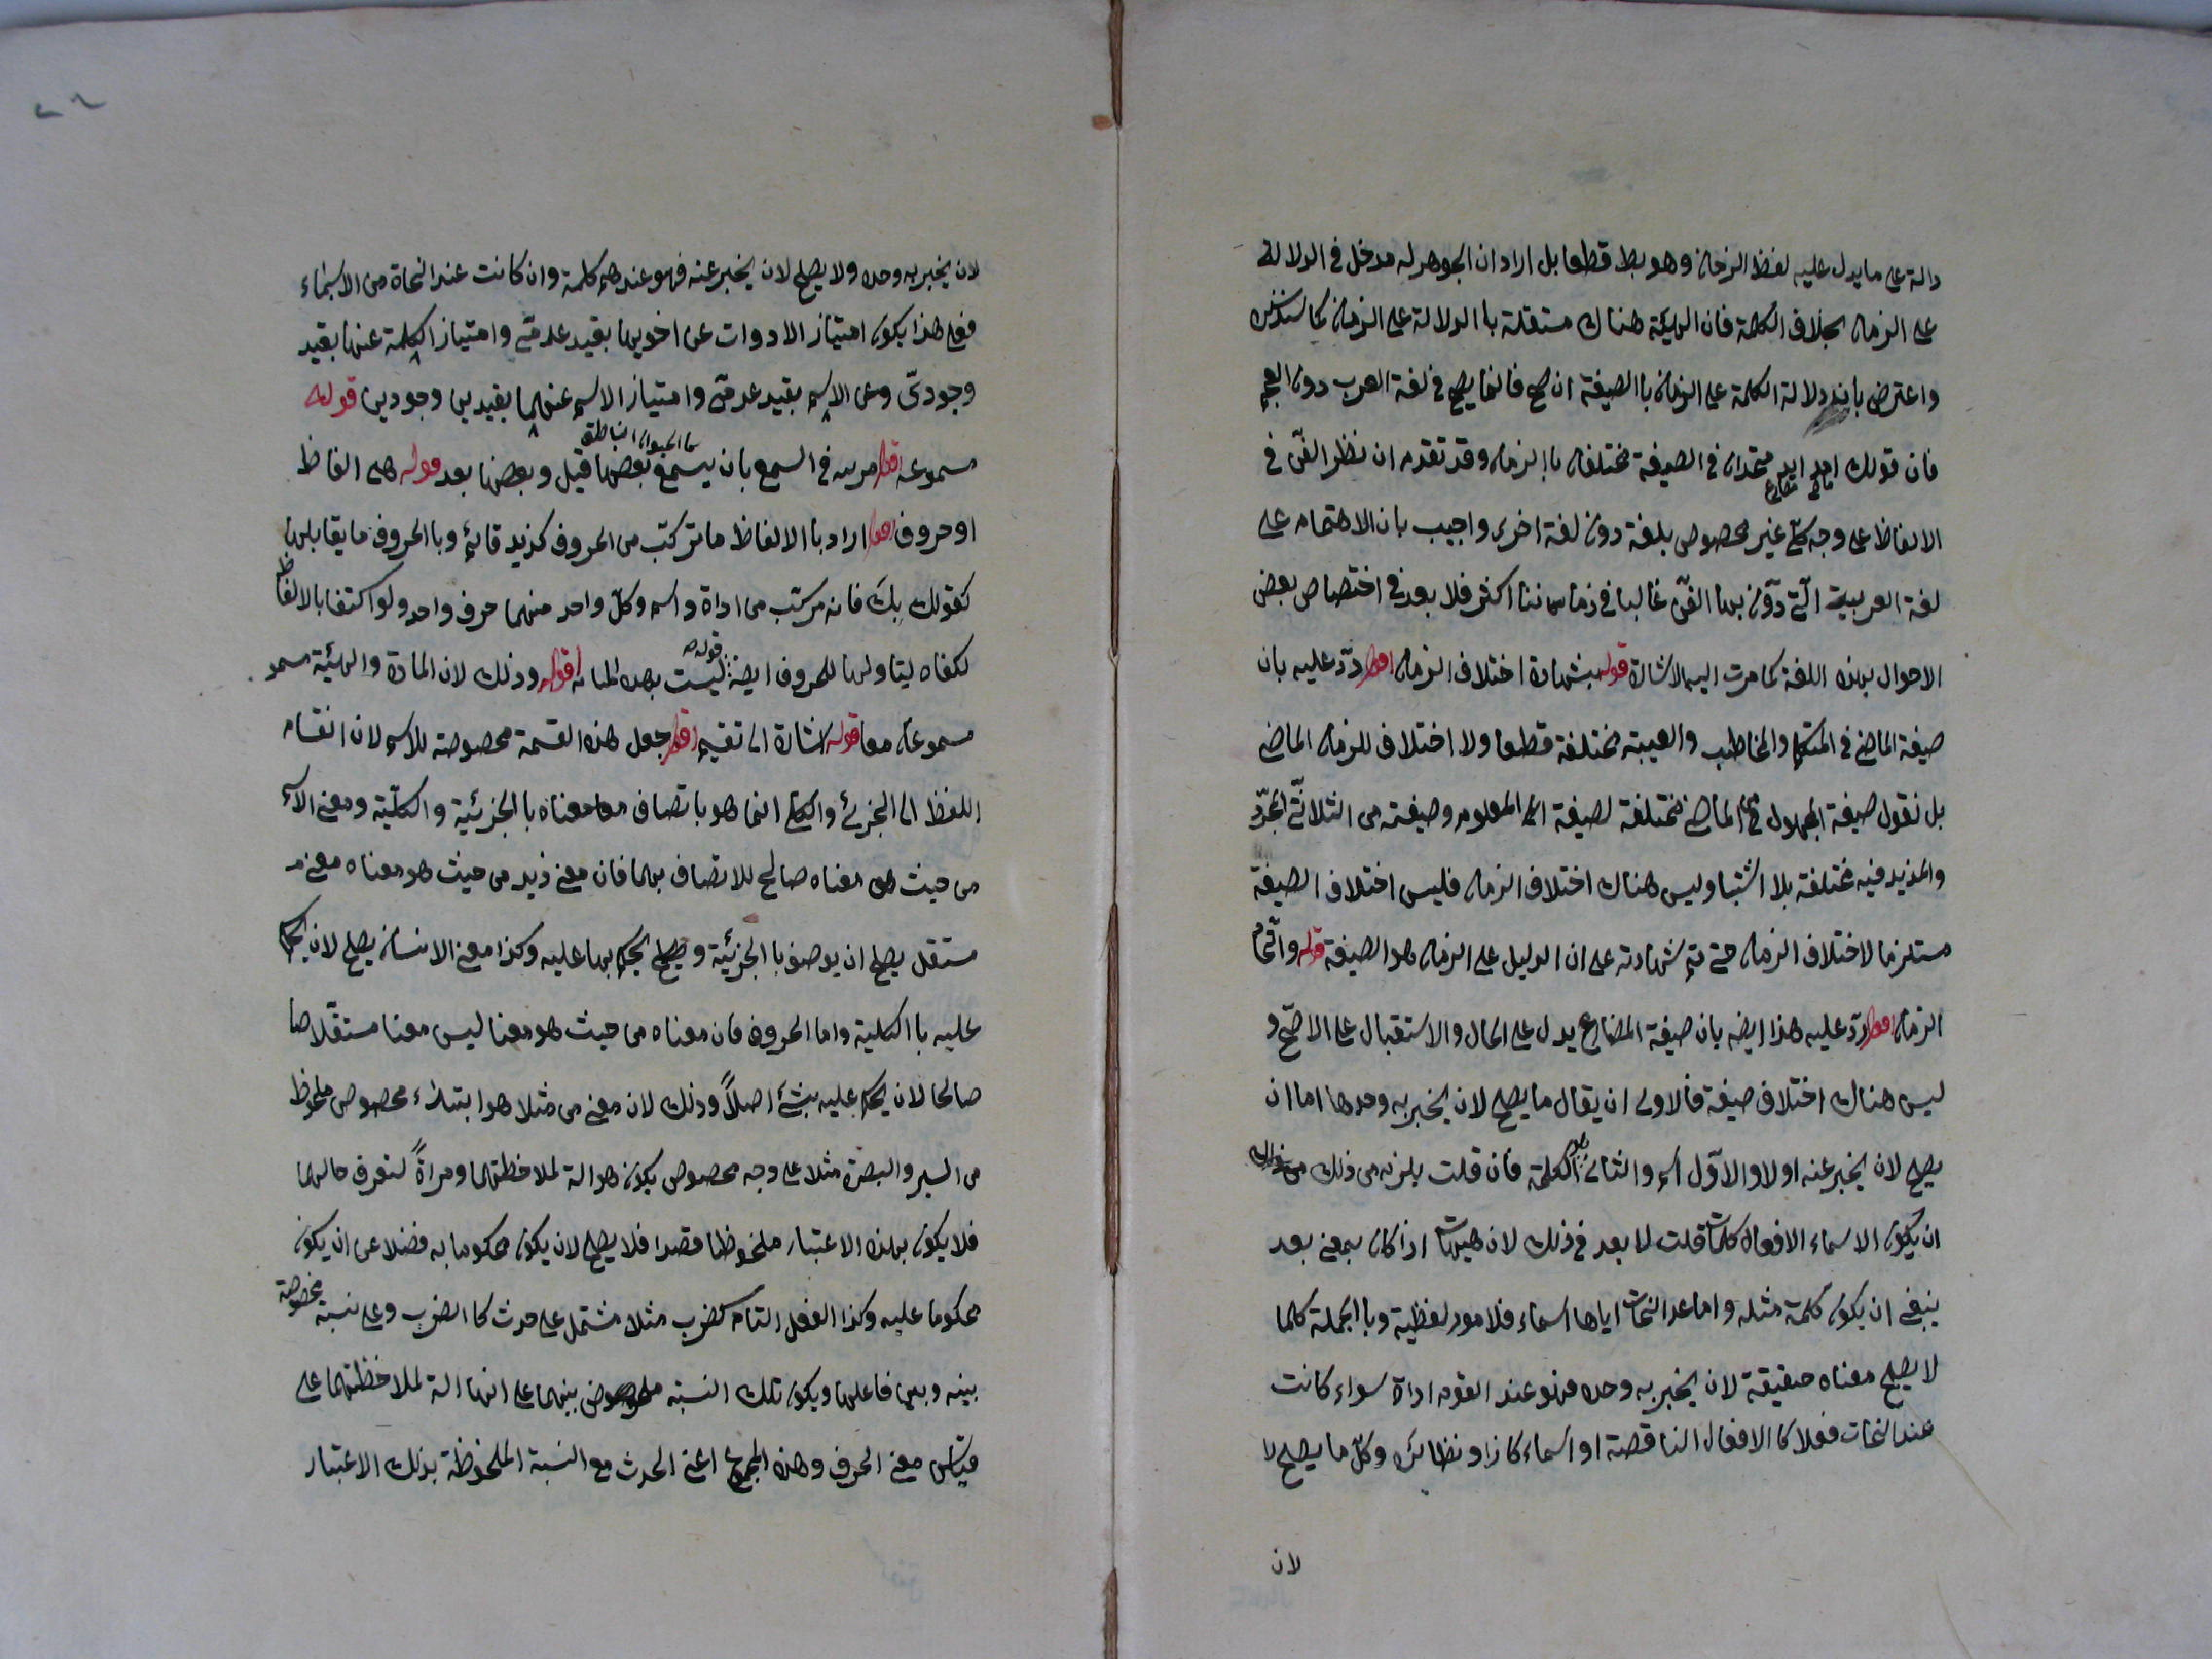 دالة على ما يدل عليه لفظ الزمان وهو بط قطعا بل اراد ان الجوهر له مدخل فى الدلالة
على الزمان بخلاف الكلمة فان الهيئة هناك مستقلة با الدلالة على الزمان كما
واعترض بان دلالة الكلمة على الزمان با الصيغة ان صح فانما يصح فى لغة العرب دون العجم
فان قولك امد ايد متحدان فى الصيغة مختلفان با الزمان وقد تقدم ان نظر الفن فى
الالفاظ على وجه كلى غير مخصوص بلغة دون لغة اخرى واجيب بان الاهتمام على
لغة العربية التى دون بها الفن غالبا فى زماننا اكثر فلا بعد فى اختصاص بعض
الاحوال بهذه اللغة كما مرت اليه الاشارة قوله بشهادة اختلاف الزمان اقول ردّ عليه بان
صيغة الماضى فى المتكلم والمخاطب والغيبة مختلفة قطعا ولا اختلاف للزمان الماضى
بل نقول صيغة المجهول من الماضى مختلفة لصيغة المعلوم وصيغته من الثلاثى المجرّد
والمزيد فيه مختلفة بلا اشتبا وليس هناك اختلاف الزمان فليس اختلاف الصيغة
مستلزما لاختلاف الزمان حتى تتم شهادته على ان الدليل على الزمان هو الصيغة قوله واتحاد
الزمان اقول ردّ عليه هذا ايضه بان صيغة المضارع يدل على الحال والاستقبال على الاصحّ و
ليس هناك اختلاف صيغة فالاولى ان يقال ما يصلح لان يخبر به وحدها اما ان
يصلح لان يخبر عنه اولا والاوّل اسم والثانى هو الكلمة فان قلت يلزم من ذلك
ان يكون الاسماء الافعال كلمات قلت لا بعد فى ذلك لان هيهات اذا كان بمعنى بعد
ينبغى ان يكون كلمة مثله واما عد النحات اياها اسماء فلامور لفظية وبا الجملة كلما
لا يصلح معناه حقيقة لان يخبر به وحده فهو عند القوم اداة سواء كانت
عند النحات فعلا كا الافعال الناقصة او اسماء كاذا ونظائره وكلّ ما يصلح لا
لان
لان يخبر به وحده ولا يصلح لان يخبر عنه فهو عندهم كلمة وان كانت عند النحاة من الاسماء
فعلى هذا يكون امتياز الادوات عن اخويها بقيد عدمىّ وامتياز الكلمة عنها بقيد
وجودىّ وعن الاسم بقيد عدمىّ وامتياز الاسم عنهما بقيدين وجوديين قوله
كا الحيوان الناطق
مسموعه اقول مرتبه فى السمع بان يسمع بعضها قبل وبعضها بعد قوله هى الفاظ
او حروف اقول اراد با الالفاظ ما تركّب من الحروف كزيد قائم وبا الحروف ما يقابلها
كقولك بك فانه مركّب من اداة واسم وكلّ واحد منهما حرف واحد ولو اكتفا بالالفاظ
لكفاه ليتاولها للحروف ايضه قوله ليست بهذه المثابة اقول وذلك لان المادة والهيئة مسمو
مسموعان معا قوله اشارة الى تقسيم اقول جعل هذه القسمة مخصوصة للاسم لان انقسام
اللفظ الى الجزئى والكلى انما هو باتصاف معناه با الجزئية والكلّية ومعنى الاسم
من حيث هو معناه صالح للاتصاف بهما فان معنى زيد من حيث هو معناه معنى
مستقل يصلح ان يوصف با الجزئية ويصلح الحكم بها عليه وكذا معنى الانسان يصلح لان يحكم
عليه با الكلية واما الحروف فان معناه من حيث هو معنا ليس معنا مستقلا صا
صالحا لان يحكم عليه بشئ اصلاً وذلك لان معنى من مثلا هو ابتداء مخصوص ملحوظ
من السير والبصرة مثلا على وجه مخصوص يكون هو الة لملاحظتهما ومراةً لتعرف حالهما
فلا يكون بهذه الاعتبار ملحوظا قصدا فلا يصلح لان يكون محكوما به فضلا عن ان يكون
محكوما عليه وكذا الفعل التام كضرب مثلا مشتمل على حدث كا الضرب وعلى نسبة مخصوصة
بينه وبين فاعلها ويكون تلك النسبة بينهما على انها الة لملاحظتهما على
قياس معنى الحرف وهذه المجموع اعنى الحدث مع النسبة الملحوظة بذلك الاعتبار